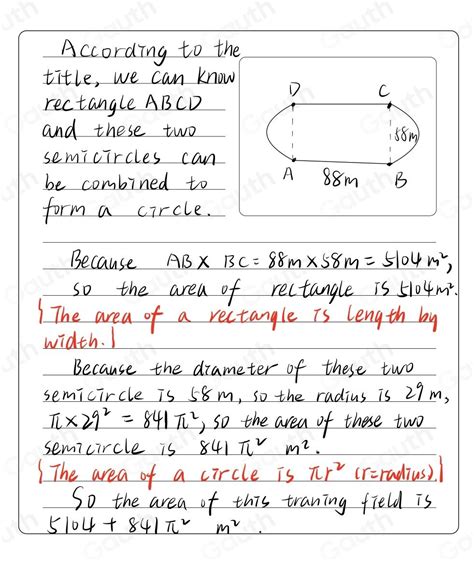 According to the
title, we can know
rectangle ABCD
and these two
semicircles can
be combined to
form a circle.
D C
58m
A 88m B
Because AB x BC = 88m x 58m = 5104m²,
so the area of rectangle is 5104m².
{The area of a rectangle is length by
width.}
Because the diameter of these two
semicircle is 58 m, so the radius is 29 m,
π x 29² = 841π², so the area of these two
semicircle is 841π² m².
{The area of a circle is πr² (r=radius).}
So the area of this traning field is
5104 + 841π² m².